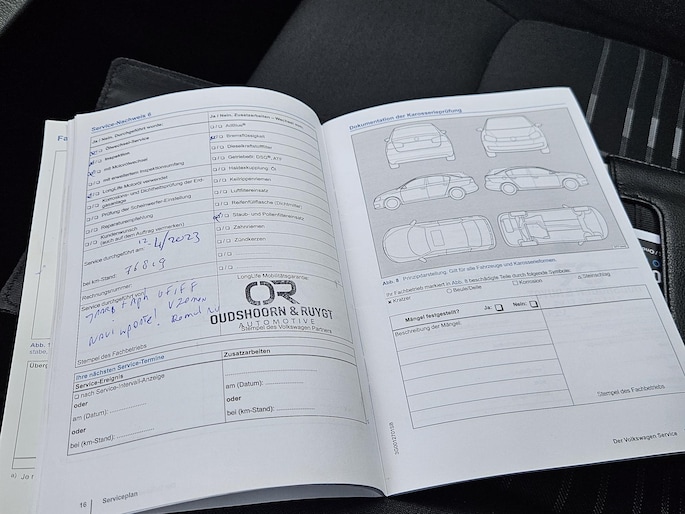 Service-Nachweis 6
Ja / Nein, Durchgeführt wurde:
Ölwechsel-Service
Inspektion
mit Motorölwechsel
mit erweitertem Inspektionsumfang
LongLife Motoröl verwendet
Korrosions- und Dichtheitsprüfung der Erd-
gasanlage
Prüfung der Scheinwerfer-Einstellung
Reparaturempfehlung
Kundenwunsch
(auch auf dem Auftrag vermerken)
Service durchgeführt am: 12/4/2023
bei km-Stand: 76819
Rechnungsnummer:
Service durchgeführt von:
Stempel des Fachbetriebs
Ja / Nein, Einzelarbeiten – Wechsel von:
AdBlue®
Bremsflüssigkeit
Dieselkraftstofffilter
Getriebeöl: DSG®, ATF
Haldexkupplung, Öl
Keilrippenriemen
Luftfiltereinsatz
Reifenfüllflasche (Dichtmittel)
Staub- und Pollenfiltereinsatz
Zahnriemen
Zündkerzen
LongLife Mobilitätsgarantie:
OR
OUDSHOORN & RUYGT
AUTOMOTIVE
Stempel des Volkswagen Partners
Ihre nächsten Service-Termine
Service-Ereignis
nach Service-Intervall-Anzeige
oder
am (Datum):
oder
bei (km-Stand):
Zusatzarbeiten
am (Datum):
oder
bei (km-Stand):
16 Serviceplan
Dokumentation der Karosserieprüfung
Abb. 8 Prinzipdarstellung. Gilt für alle Fahrzeuge und Karosserieformen.
Ihr Fachbetrieb markiert in Abb. 8 beschädigte Teile durch folgende Symbole:
× Kratzer ○ Beule/Delle □ Korrosion △ Steinschlag
Mängel festgestellt? Ja: Nein:
Beschreibung der Mängel:
Stempel des Fachbetriebs
Der Volkswagen Service